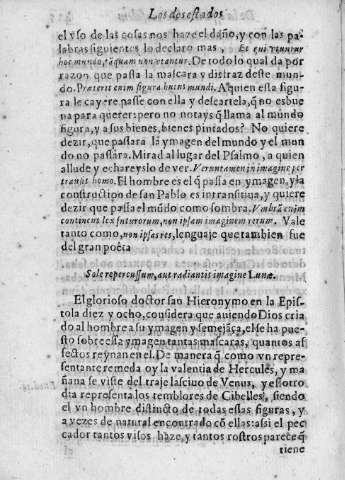 Los dos estados
el vso de las cosas nos haze el daño, y con las pa-
labras siguientes lo declaro mas, Et qui vtuntur
hoc mundo, tãquam non vtantur. De todo lo qual da por
razon que passa la mascara y disfraz deste mun-
do. Præterit enim figura huius mundi. A quien esta figu-
ra le cayere passe con ella y descartela, q̃ no es bue
na para querer: pero no notays q̃ llama al mũdo
figura, y a sus bienes, bienes pintados? No quiere
dezir, que passara la ymagen del mundo y el mun
do no passara. Mirad al lugar del Psalmo, a quien
allude y echareys lo de ver. Veruntamen in imagine per
transit homo. El hombre es el q̃ passa en ymagen, y la
construction de san Pablo es intransitiua, y quiere
dezir que passa el mũdo como sombra. Vmbrã enim
continens lex futurorum, non ipsam imaginem rerum. Vale
tanto como, non ipsas res, lenguaje que tambien fue
del gran poeta
Sole repercussum, aut radiantis imagine Lunæ.
El glorioso doctor san Hieronymo en la Epis-
tola diez y ocho, considera que auiendo Dios cria
do al hombre a su ymagen y semejãça, el se ha pue-
sto sobre essa ymagen tantas mascaras, quantos af
fectos reynan en el. De manera q̃ como vn repre-
sentante remeda oy la valentia de Hercules, y ma
ñana se viste del traje lasciuo de Venus, y essotro
dia representa los temblores de Cibelles, siendo
el vn hombre distincto de todas essas figuras, y
a vezes de natural encontrado cõ ellas: assi el pec
cador tantos visos haze, y tantos rostros parece q̃
tiene